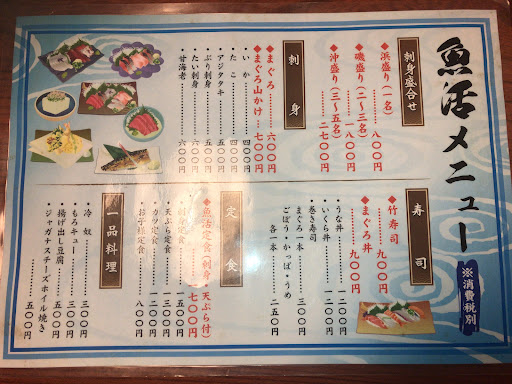 魚活メニュー
※消費税別
刺身盛合せ
◆浜盛り(一名) 八〇〇円
◆磯盛り(二～三名) 一八〇〇円
◆沖盛り(二～五名) 二七〇〇円
刺身
◆まぐろ 六〇〇円
◆まぐろ山かけ 七〇〇円
・いか 四〇〇円
・たこ 四〇〇円
・アジタタキ 五〇〇円
・ぶり刺身 五〇〇円
・たい刺身 六〇〇円
・甘海老 六〇〇円
寿司
◆竹寿司 九〇〇円
◆まぐろ丼 九〇〇円
・うな丼 一二〇〇円
・いくら丼 一二〇〇円
・巻き寿司
まぐろ 一本 三〇〇円
ごぼう・かっぱ・うめ
各一本 二五〇円
定食
◆魚活定食(刺身・天ぷら付)
一七〇〇円
定食 一五〇〇円
・天ぷら定食 一三〇〇円
・カツ定食 一二〇〇円
・お子様定食 八〇〇円
一品料理
・冷奴 三〇〇円
・もろキュー 三〇〇円
・揚げ出し豆腐 五〇〇円
・ジャガナスチーズホイル焼き
五〇〇円